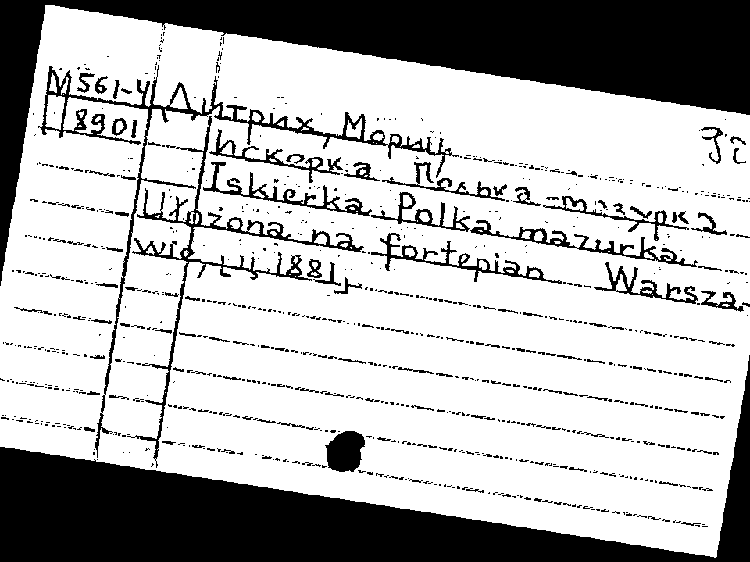 М 561-4 Дитрих, Мориц,
8901 Искорка. Полька-мазурка
Iskierka. Polka mazurka.
Ułożona na fortepian Warsza-
wie, [ц 1881]